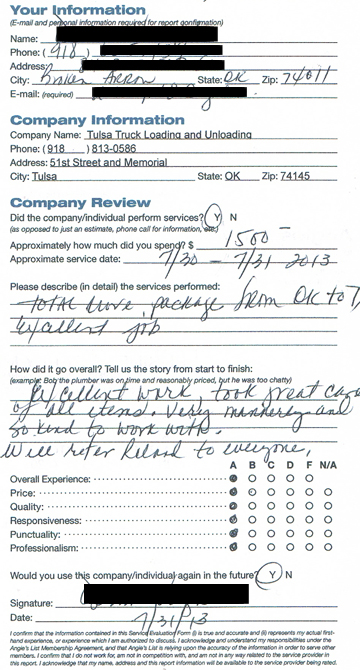 Your Information
(E-mail and personal information required for report confirmation)
Name:
Phone: (918)
Address:
City: Broken Arrow State: OK Zip: 74011
E-mail: (required)
Company Information
Company Name: Tulsa Truck Loading and Unloading
Phone: (918 ) 813-0586
Address: 51st Street and Memorial
City: Tulsa State: OK Zip: 74145
Company Review
Did the company/individual perform services? Y N
(as opposed to just an estimate, phone call for information, etc.)
Approximately how much did you spend? $ 1500 -
Approximate service date: 7/30 - 7/31 2013
Please describe (in detail) the services performed:
total move, package from OK to
Excellent job
How did it go overall? Tell us the story from start to finish:
(example: Bob the plumber was on time and reasonably priced, but he was too chatty)
Excellent work, took great care
of all items. Very mannerly and
so kind to work with.
Will refer to everyone.
A B C D F N/A
Overall Experience:
Price:
Quality:
Responsiveness:
Punctuality:
Professionalism:
Would you use this company/individual again in the future? Y N
Signature:
Date: 7/31/13
I confirm that the information contained in this Service Evaluation Form (i) is true and accurate and (ii) represents my actual first-
hand experience, or experience which I am authorized to discuss. I acknowledge and understand my responsibilities under the
Angie's List Membership Agreement, and that Angie's List is relying upon the accuracy of the information in order to serve other
members. I confirm that I do not work for, am not in competition with, and am not in any way related to the service provider in
this report. I acknowledge that my name, address and this report information will be available to the service provider being rated.